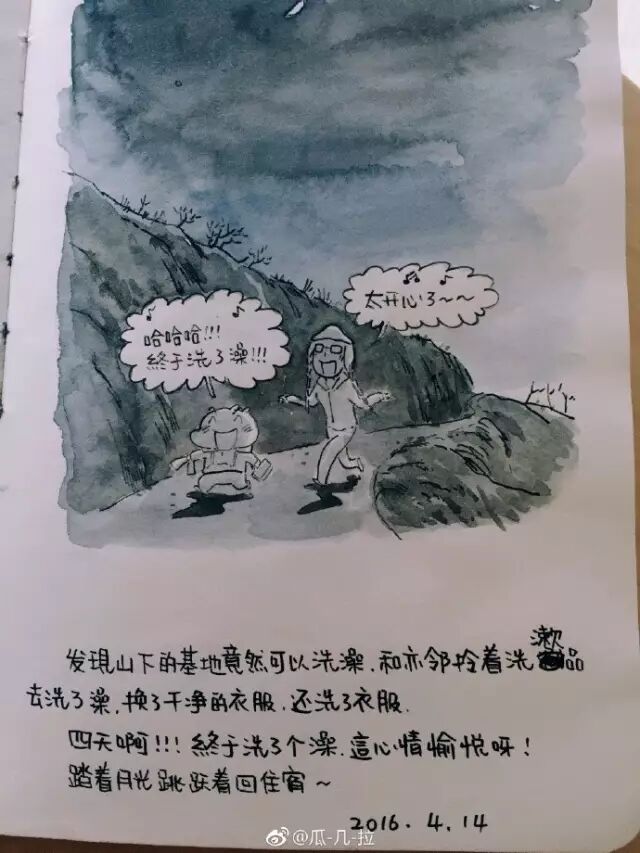 太开心了～～
哈哈哈!!!
終于洗了澡!!!
发現山下的基地竟然可以洗澡.和亦邻拎着洗漱品
去洗了澡.換了干净的衣服.还洗了衣服.
四天啊!!!終于洗了个澡.這心情愉悦呀!
踏着月光跳跃着回住宿～
2016.4.14
@瓜-几-拉